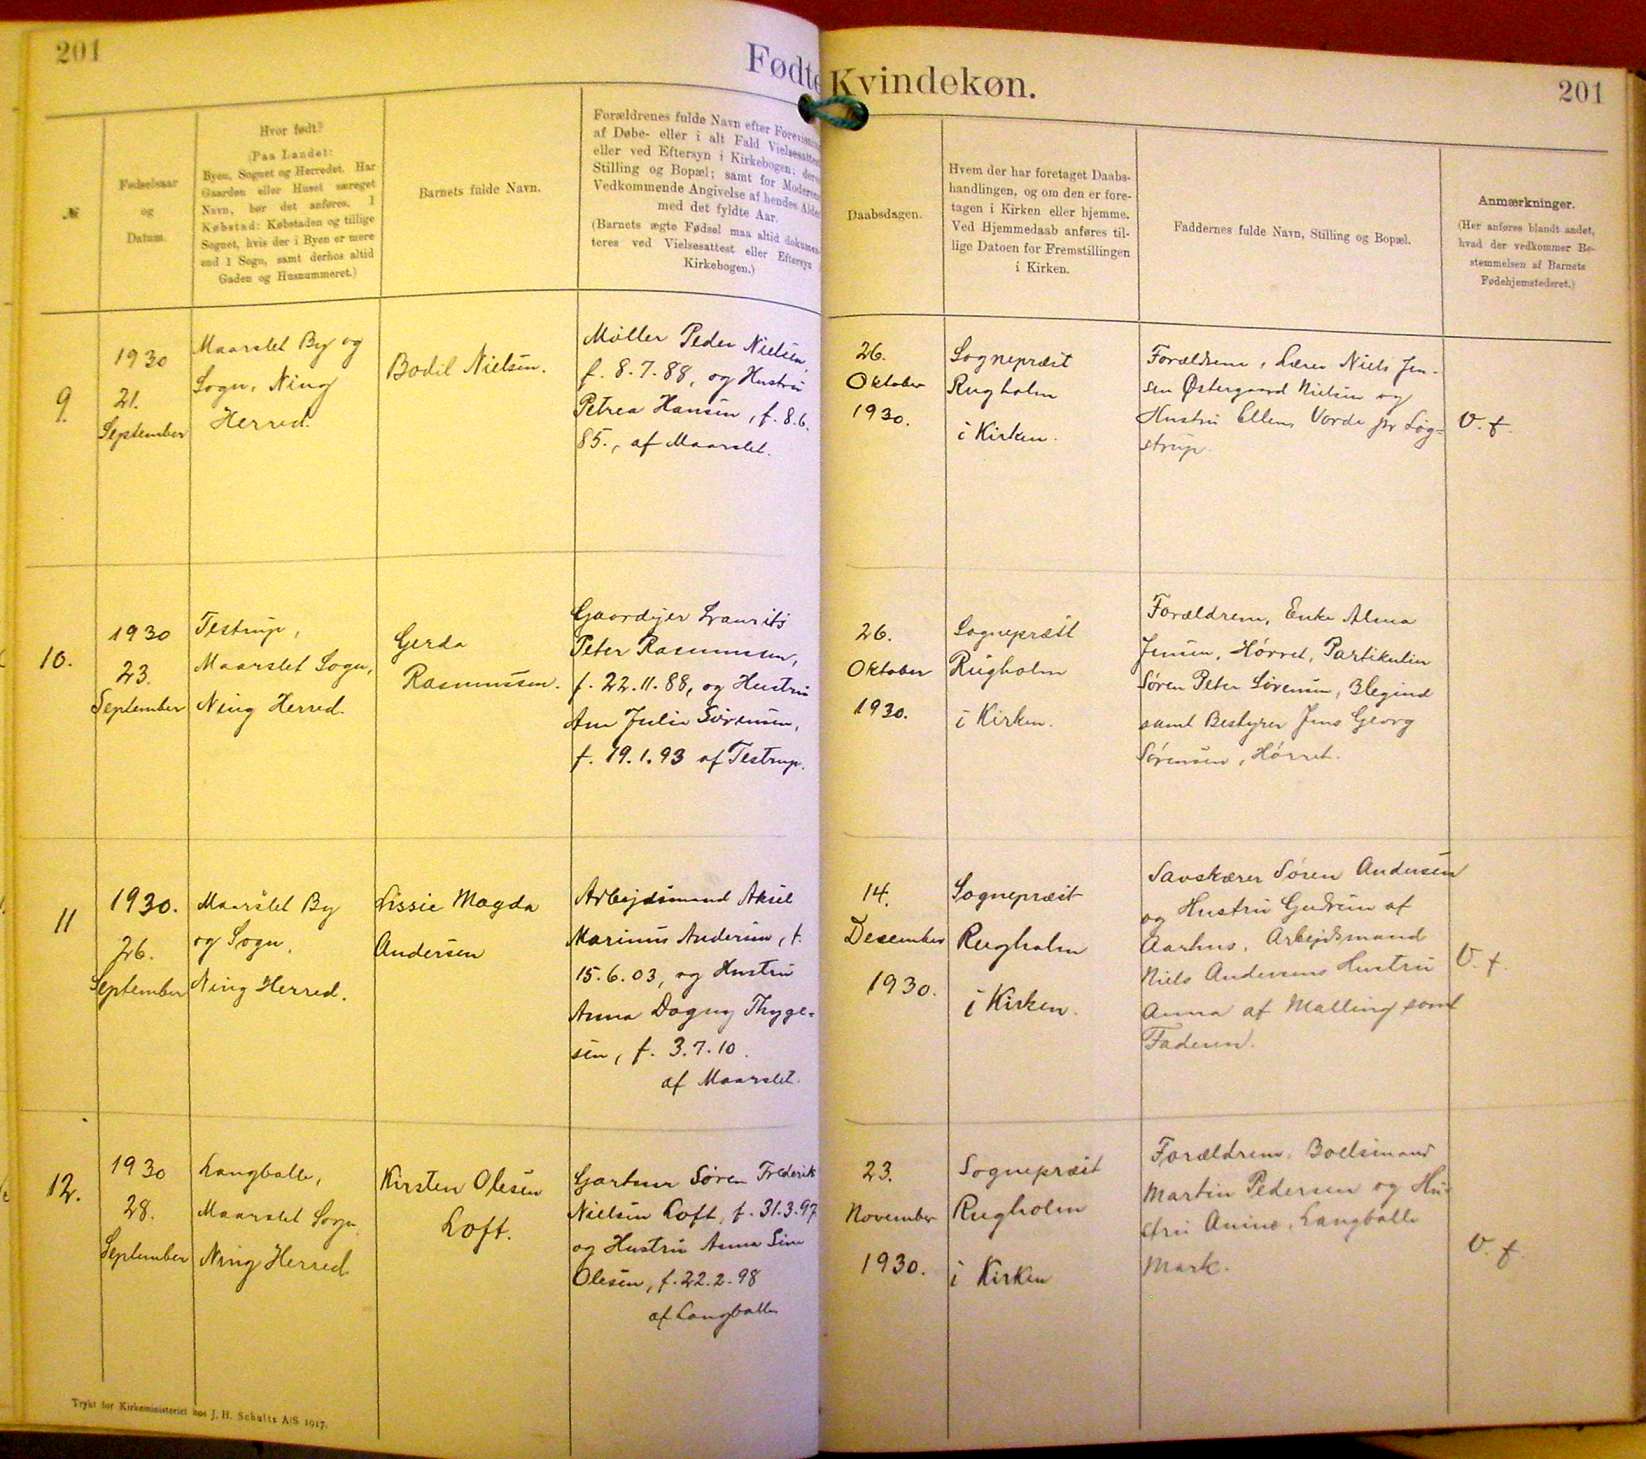 201
Fødte
Kvindekøn.
201
№
Fødselsaar
og
Datum.
Hvor født?
(Paa Landet:
Byen, Sognet og Herredet. Har
Gaarden eller Huset særeget
Navn, bør det anføres. I
Købstad: Købstaden og tillige
Sognet, hvis der i Byen er mere
end 1 Sogn, samt derhos altid
Gaden og Husnummeret.)
Barnets fulde Navn.
Forældrenes fulde Navn efter
af Døbe- eller i alt Fald
eller ved Eftersyn i Kirkebogen;
Stilling og Bopæl; samt for
Vedkommende Angivelse af hendes
med det fyldte Aar.
(Barnets ægte Fødsel maa altid
teres ved Vielsesattest eller Eftersyn
Kirkebogen.)
Daabsdagen.
Hvem der har foretaget Daabs-
handlingen, og om den er fore-
tagen i Kirken eller hjemme.
Ved Hjemmedaab anføres til-
lige Datoen for Fremstillingen
i Kirken.
Faddernes fulde Navn, Stilling og Bopæl.
Anmærkninger.
(Her anføres blandt andet,
hvad der vedkommer Be-
stemmelsen af Barnets
Fødehjemstederet.)
9.
1930
21.
September
Maarslet By og
Sogn, Ning
Herred.
Bodil Nielsen.
Møller Peder Nielsen,
f. 8.7.88, og Hustru
Petrea Hansen, f. 8.6.
85., af Maarslet.
26.
Oktober
1930.
Sognepræst
Rugholm
i Kirken.
Forældrene, Lærer Niels Jen-
sen Østergaard Nielsen og
Hustru Ellen, Vorde pr Løg=
strup.
V. f.
10.
1930
23.
September
Testrup,
Maarslet Sogn,
Ning Herred.
Gerda
Rasmussen.
Gaardejer Laurits
Peter Rasmussen,
f. 22.11.88, og Hustru
Ane Julie Sørensen,
f. 19.1.93 af Testrup.
26.
Oktober
1930.
Sognepræst
Rugholm
i Kirken.
Forældrene, Enke Alma
Jensen, Hørret, Partikulier
Søren Peter Sørensen, Blegind
samt Bestyrer Jens Georg
Sørensen, Hørret.
11
1930.
26.
September
Maarslet By
og Sogn,
Ning Herred.
Lissie Magda
Andersen
Arbejdsmand Aksel
Marinus Andersen, f.
15.6.03, og Hustru
Anna Dagny Thyge=
sen, f. 3.7.10.
af Maarslet.
14.
December
1930.
Sognepræst
Rugholm
i Kirken.
Savskærer Søren Andersen
og Hustru Gudrun af
Aarhus. Arbejdsmand
Niels Andersens Hustru
Anna af Malling samt
Faderen.
V. f.
12.
1930
28.
September
Langballe,
Maarslet Sogn,
Ning Herred.
Kirsten Olesen
Loft.
Gartner Søren Frederik
Nielsen Loft, f. 31.3.97
og Hustru Anna Sine
Olesen, f. 22.2.98
af Langballe
23.
November
1930.
Sognepræst
Rugholm
i Kirken
Forældrene, Boelsmand
Martin Pedersen og Hu-
stru Anine, Langballe
Mark.
V. f.
Trykt for Kirkeministeriet hos J. H. Schultz A/S 1917.